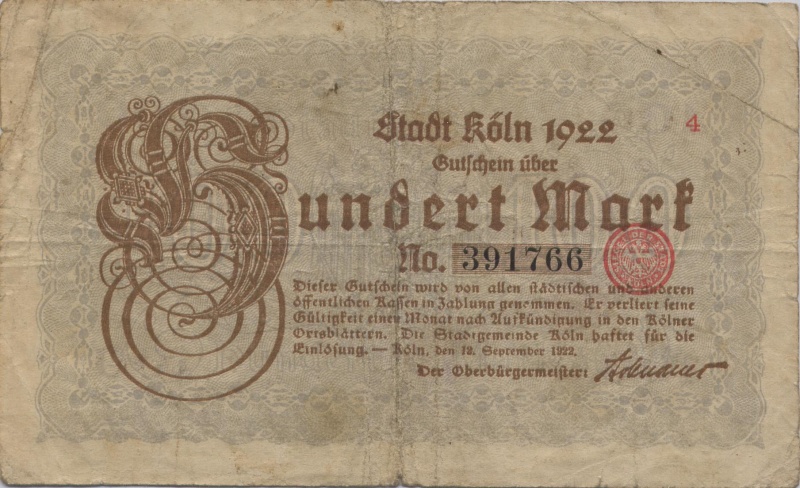 Stadt Köln 1922
4
Gutschein über
Hundert Mark
No. 391766
Dieser Gutschein wird von allen städtischen und anderen
öffentlichen Kassen in Zahlung genommen. Er verliert seine
Gültigkeit einen Monat nach Aufkündigung in den Kölner
Ortsblättern. Die Stadtgemeinde Köln haftet für die
Einlösung. — Köln, den 12. September 1922.
Der Oberbürgermeister: Adenauer